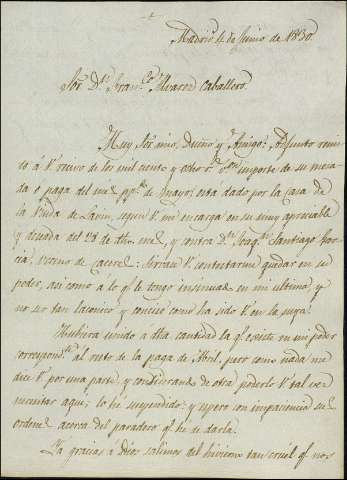 Madrid 4 de Junio de 1830.
Sor. Dn. Fran.co Alvarez Caballero.
Muy Sor. mio, Dueño y Amigo: Adjunto remi
to á V. recivo de los mil ciento y ocho r.s von importe de su mesa
da o paga del mes pp.do de Mayo: está dado por la casa de
la Viuda de según V. me encarga en su muy apreciable
y deseada del 28 de dho. mes, y contra Dn. Joaqn. Santiago Gar
cia, Vecino de Caceres: Sirvase V. contestarme quedar en su
poder, asi como á lo q.e le tengo insinuado en mi ultima, y
no ser tan laconico y conciso como ha sido V. en la suya.
Hubiera unido á dha. cantidad la q.e existe en mi poder
correspond.te al resto de la paga de Abril, pero como nada me
dice V. por una parte, y considerando de otra poderlo V. tal vez
necesitar aqui; lo hé suspendido: y espero con impaciencia sus
ordenes acerca del paradero q.e hé de darla.
Ya gracias á Dios salimos del hivierno tan cruel q.e nos